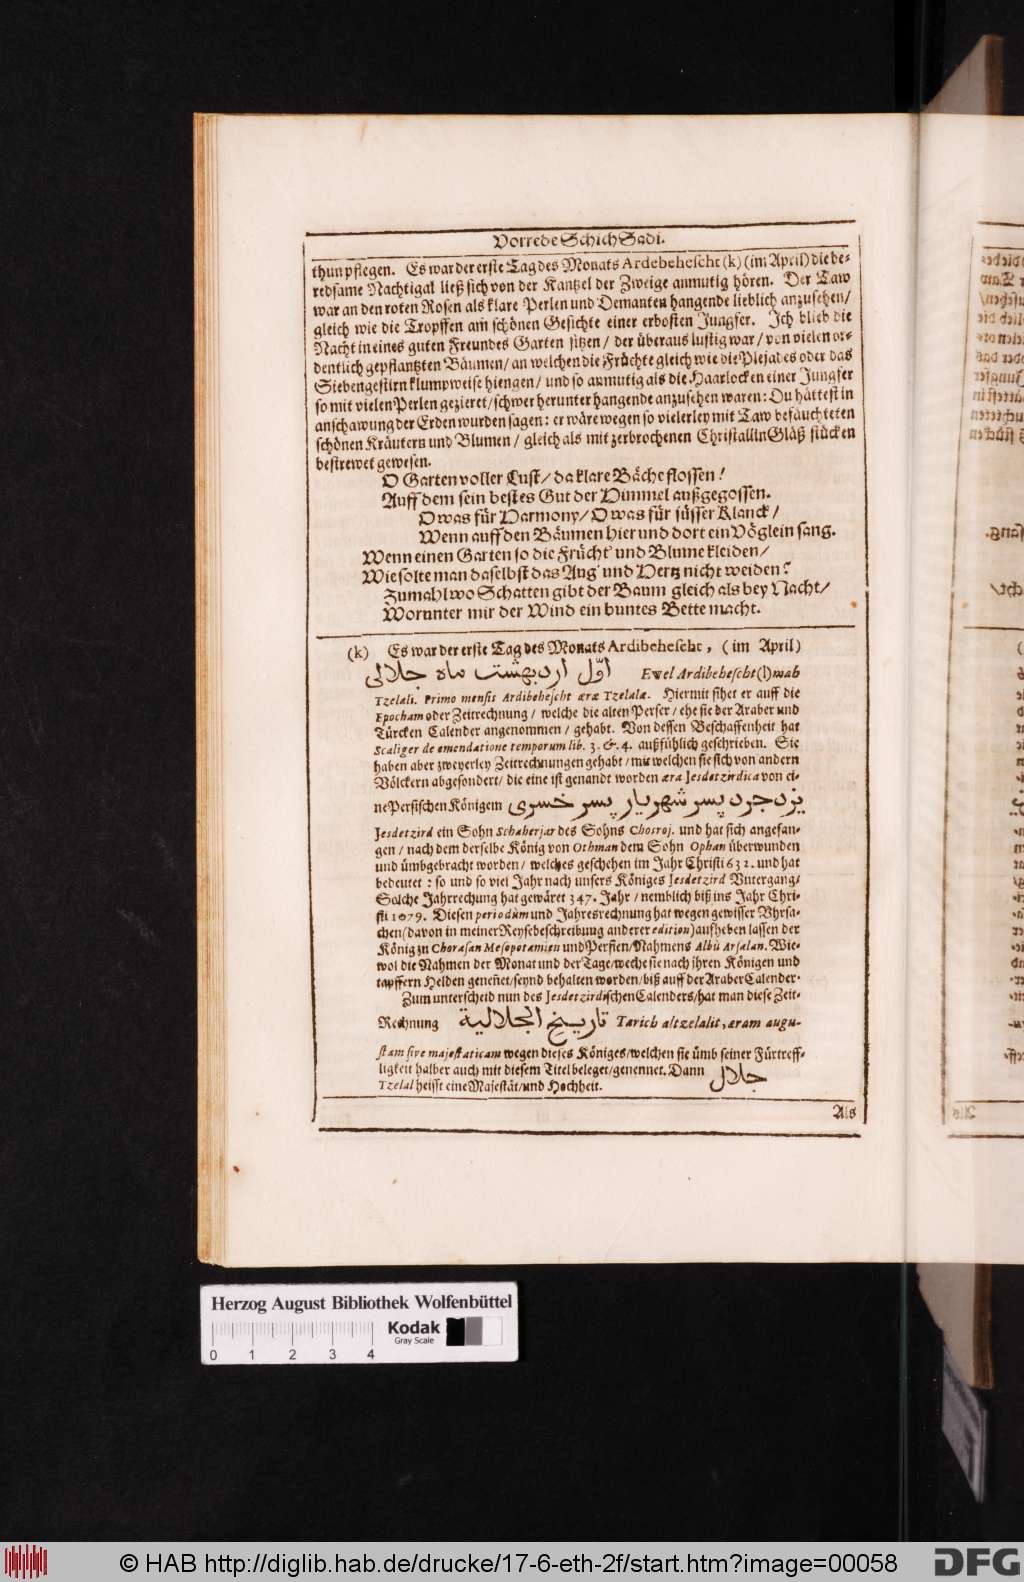 Vorrede Schich Sadi.
thun pflegen. Es war der erste Tag des Monats Ardebehescht (k) (im April) die be-
redsame Nachtigal ließ sich von der Kantzel der Zweige anmutig hören. Der Taw
war an den roten Rosen als klare Perlen und Demanten hangende lieblich anzusehen/
gleich wie die Tropffen am schönen Gesichte einer erbosten Jungfer. Ich blieb die
Nacht in eines guten Freundes Garten sitzen/ der überaus lustig war/ von vielen or-
dentlich gepflantzten Bäumen/ an welchen die Früchte gleich wie die Plejades oder das
Siebengestirn klumpweise hiengen/ und so anmutig als die Haarlocken einer Jungfer
so mit vielen Perlen gezieret/ schwer herunter hangende anzusehen waren: Du hättest in
anschawung der Erden wurden sagen: er wäre wegen so vielerley mit Taw befäuchteten
schönen Kräutern und Blumen/ gleich als mit zerbrochenen Christallin Gläß stücken
bestrewet gewesen.
O Garten voller Lust/ da klare Bäche flossen!
Auff dem sein bestes Gut der Himmel außgegossen.
O was für Harmony/ O was für süsser Klanck/
Wenn auff den Bäumen hier und dort ein Vöglein sang.
Wenn einen Garten so die Frücht' und Blume kleiden/
Wie solte man daselbst das Aug' und Hertz nicht weiden?
Zumahl wo Schatten gibt der Baum gleich als bey Nacht/
Worunter mir der Wind ein buntes Bette macht.
(k) Es war der erste Tag des Monats Ardibehescht, (im April)
اوّل اردبهشت ماه جلالی Ewel Ardibehescht (l) mah
Tzelali. Primo mensis Ardibehescht æræ Tzelalæ. Hiermit sihet er auff die
Epocham oder Zeitrechnung/ welche die alten Perser/ ehe sie der Araber und
Türcken Calender angenommen/ gehabt. Von dessen Beschaffenheit hat
Scaliger de emendatione temporum lib. 3. &. 4. außführlich geschrieben. Sie
haben aber zweyerley Zeitrechnungen gehabt/ mit welchen sie sich von andern
Völckern abgesondert/ die eine ist genandt worden æra Jesdetzirdica von ei-
ne Persischen Königem یزدجرد پسر شهریار پسر خسری
Jesdetzird ein Sohn Schaherjar des Sohns Chosroj. und hat sich angefan-
gen/ nach dem derselbe König von Othman dem Sohn Ophan überwunden
und ümbgebracht worden/ welches geschehen im Jahr Christi 632. und hat
bedeutet: so und so viel Jahr nach unsers Königes Jesdetzird Untergang/
Solche Jahrrechung hat gewäret 347. Jahr/ nemblich biß ins Jahr Chri-
sti 1079. Diesen periodùm und Jahresrechnung hat wegen gewisser Uhrsa-
chen (davon in meiner Reysebeschreibung anderer edition) aufheben lassen der
König zu Chorasan Mesopotamien und Persien/ Nahmens Albù Arsalan. Wie-
wol die Nahmen der Monat und der Tage/ weche sie nach ihren Königen und
tapffern Helden genen̄et/ seynd behalten worden/ biß auff der Araber Calender.
Zum unterscheid nun des Jesdetzirdischen Calenders/ hat man diese Zeit-
Rechnung تاريخ الجلالية Tarich altzelalit, æram augu-
stam sive majestaticam wegen dieses Königes/ welchen sie ümb seiner Fürtreff-
ligkeit halber auch mit diesem Titel beleget/ genennet. Dann جلال
Tzelal heisst eine Majestät/ und Hochheit.
Als
Herzog August Bibliothek Wolfenbüttel
Kodak
Gray Scale
0 1 2 3 4
© HAB http://diglib.hab.de/drucke/17-6-eth-2f/start.htm?image=00058
DFG